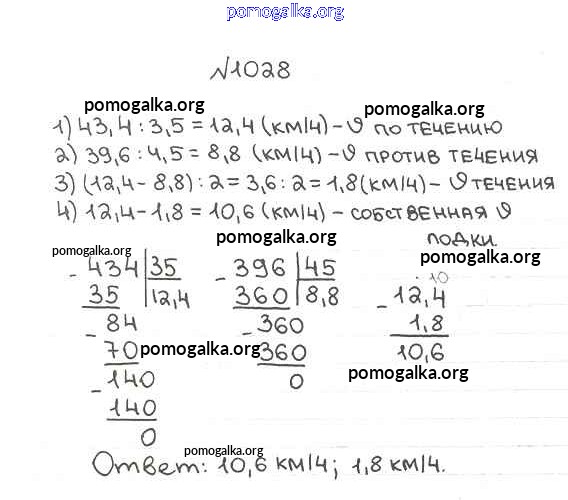 pomogalka.org
№1028
pomogalka.org pomogalka.org
1) 43,4 : 3,5 = 12,4 (км/ч) – υ по течению
2) 39,6 : 4,5 = 8,8 (км/ч) – υ против течения
3) (12,4 - 8,8) : 2 = 3,6 : 2 = 1,8 (км/ч) – υ течения
4) 12,4 - 1,8 = 10,6 (км/ч) – собственная υ
pomogalka.org лодки.
pomogalka.org pomogalka.org
- 434 | 35 - 396 | 45 10
35 | 12,4 360 | 8,8 - 12,4
- 84 - 360 1,8
70 pomogalka.org 360 10,6
- 140 0 pomogalka.org
140
0
pomogalka.org
Ответ: 10,6 км/ч; 1,8 км/ч.